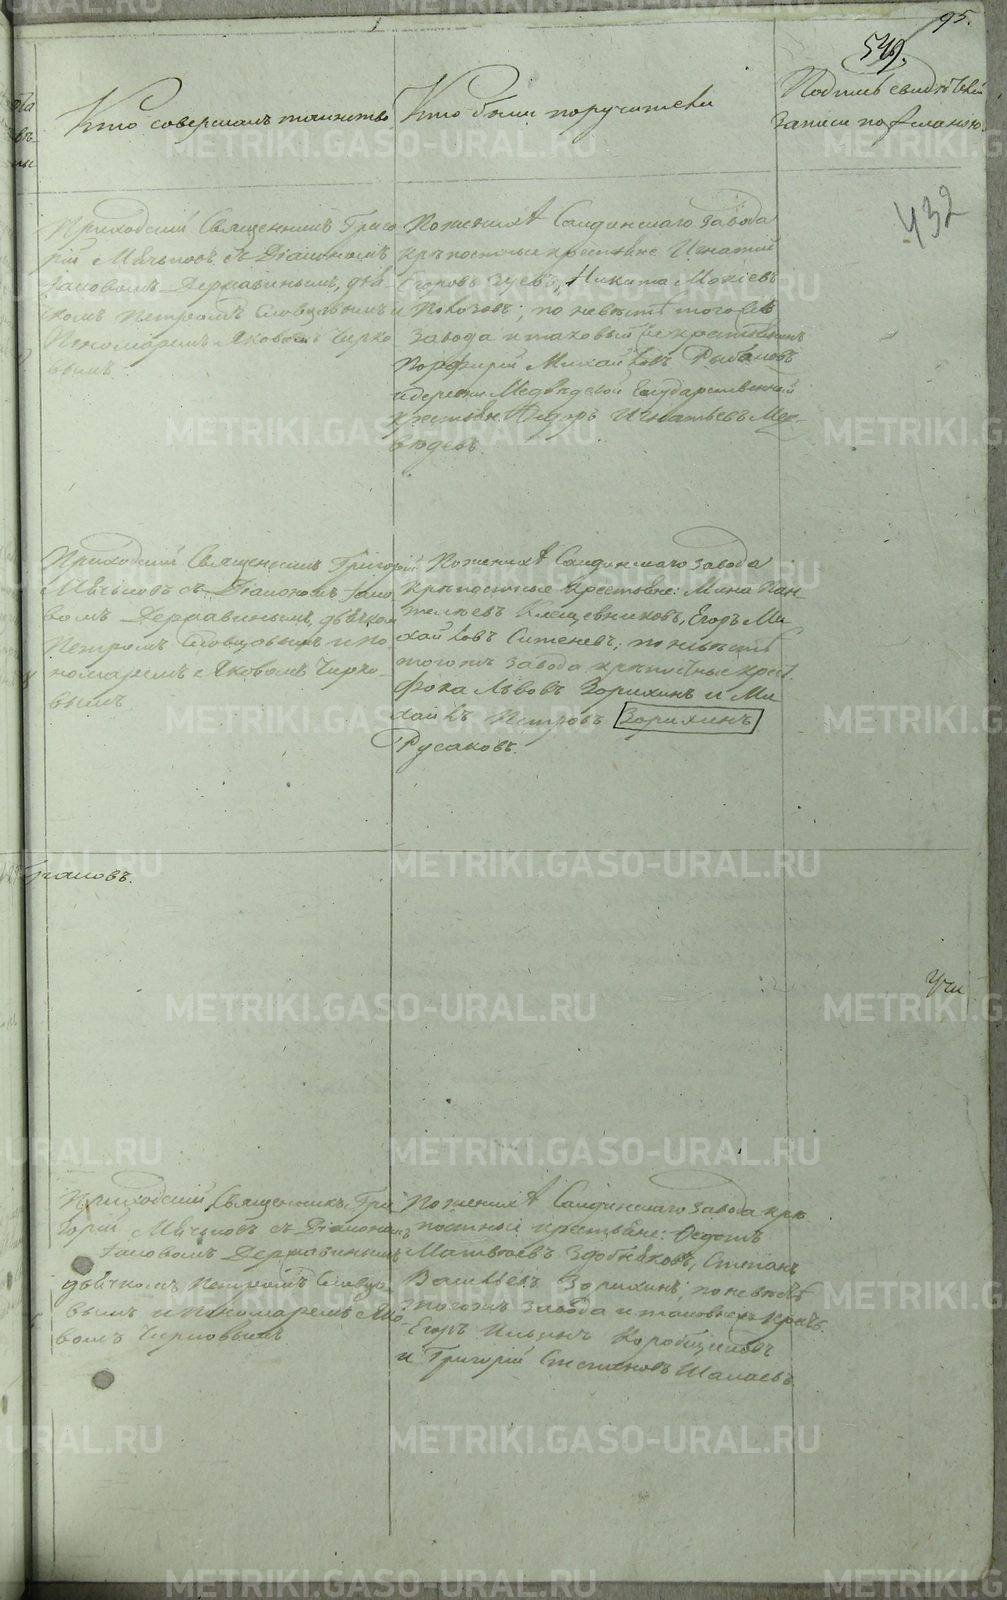 95.
549.
Кто совершалъ таинство
Кто были поручители
Подпись свидѣтелей
записи по желанію.
432
Приходскій Священникъ Григо
рій Мячьковъ съ Діакономъ
Іаковомъ Державинымъ, дья-
комъ Петромъ Словцовымъ и
Пономаремъ Яковомъ Чирко
вымъ
По женихѣ Салдинскаго завода
крѣпостные крестьяне Игнатій
Егоровъ Зуевъ, Никита Мокіевъ
по невѣстѣ того же
завода и таковый же крестьянинъ
Порфирій Михайловъ Рыбаковъ
и деревни Медвѣдевой Государственный
крестьян. Ѳедоръ Игнатьевъ Мед-
вѣдевъ.
Приходскій Священникъ Григорій
Мячьковъ съ Діакономъ Іако
вомъ Державинымъ, дьячком
Петромъ Словцовымъ и по
номаремъ Яковомъ Чирко-
вымъ
По женихѣ Салдинскаго завода
крѣпостные крестьяне: Мина Пан
телеевъ Клещевниковъ, Егоръ Ми
хайловъ Ситеневъ; по невѣстѣ
тогожъ завода крѣпостные крест.
Фока Львовъ Зорихинъ и Ми
хаилъ Петровъ Зорихинъ
Русаковъ.
Іаковъ.
Учи
Приходскій Священникъ Гри
горій Мячьковъ съ Діаконом
Іаковомъ Державинымъ
дьячкомъ Петромъ Словцо
вымъ и Пономаремъ Яко-
вомъ Чирковымъ
По женихѣ Салдинскаго завода крѣ
постные крестьяне: Ѳедотъ
Матвѣевъ Здобняковъ, Степанъ
Васильевъ Зорихинъ; по невѣстѣ
тогожъ завода и таковые крест.
Егоръ Ильинъ Коробщиковъ
и Григорій Степановъ Шалаевъ.
METRIKI.GASO-URAL.RU